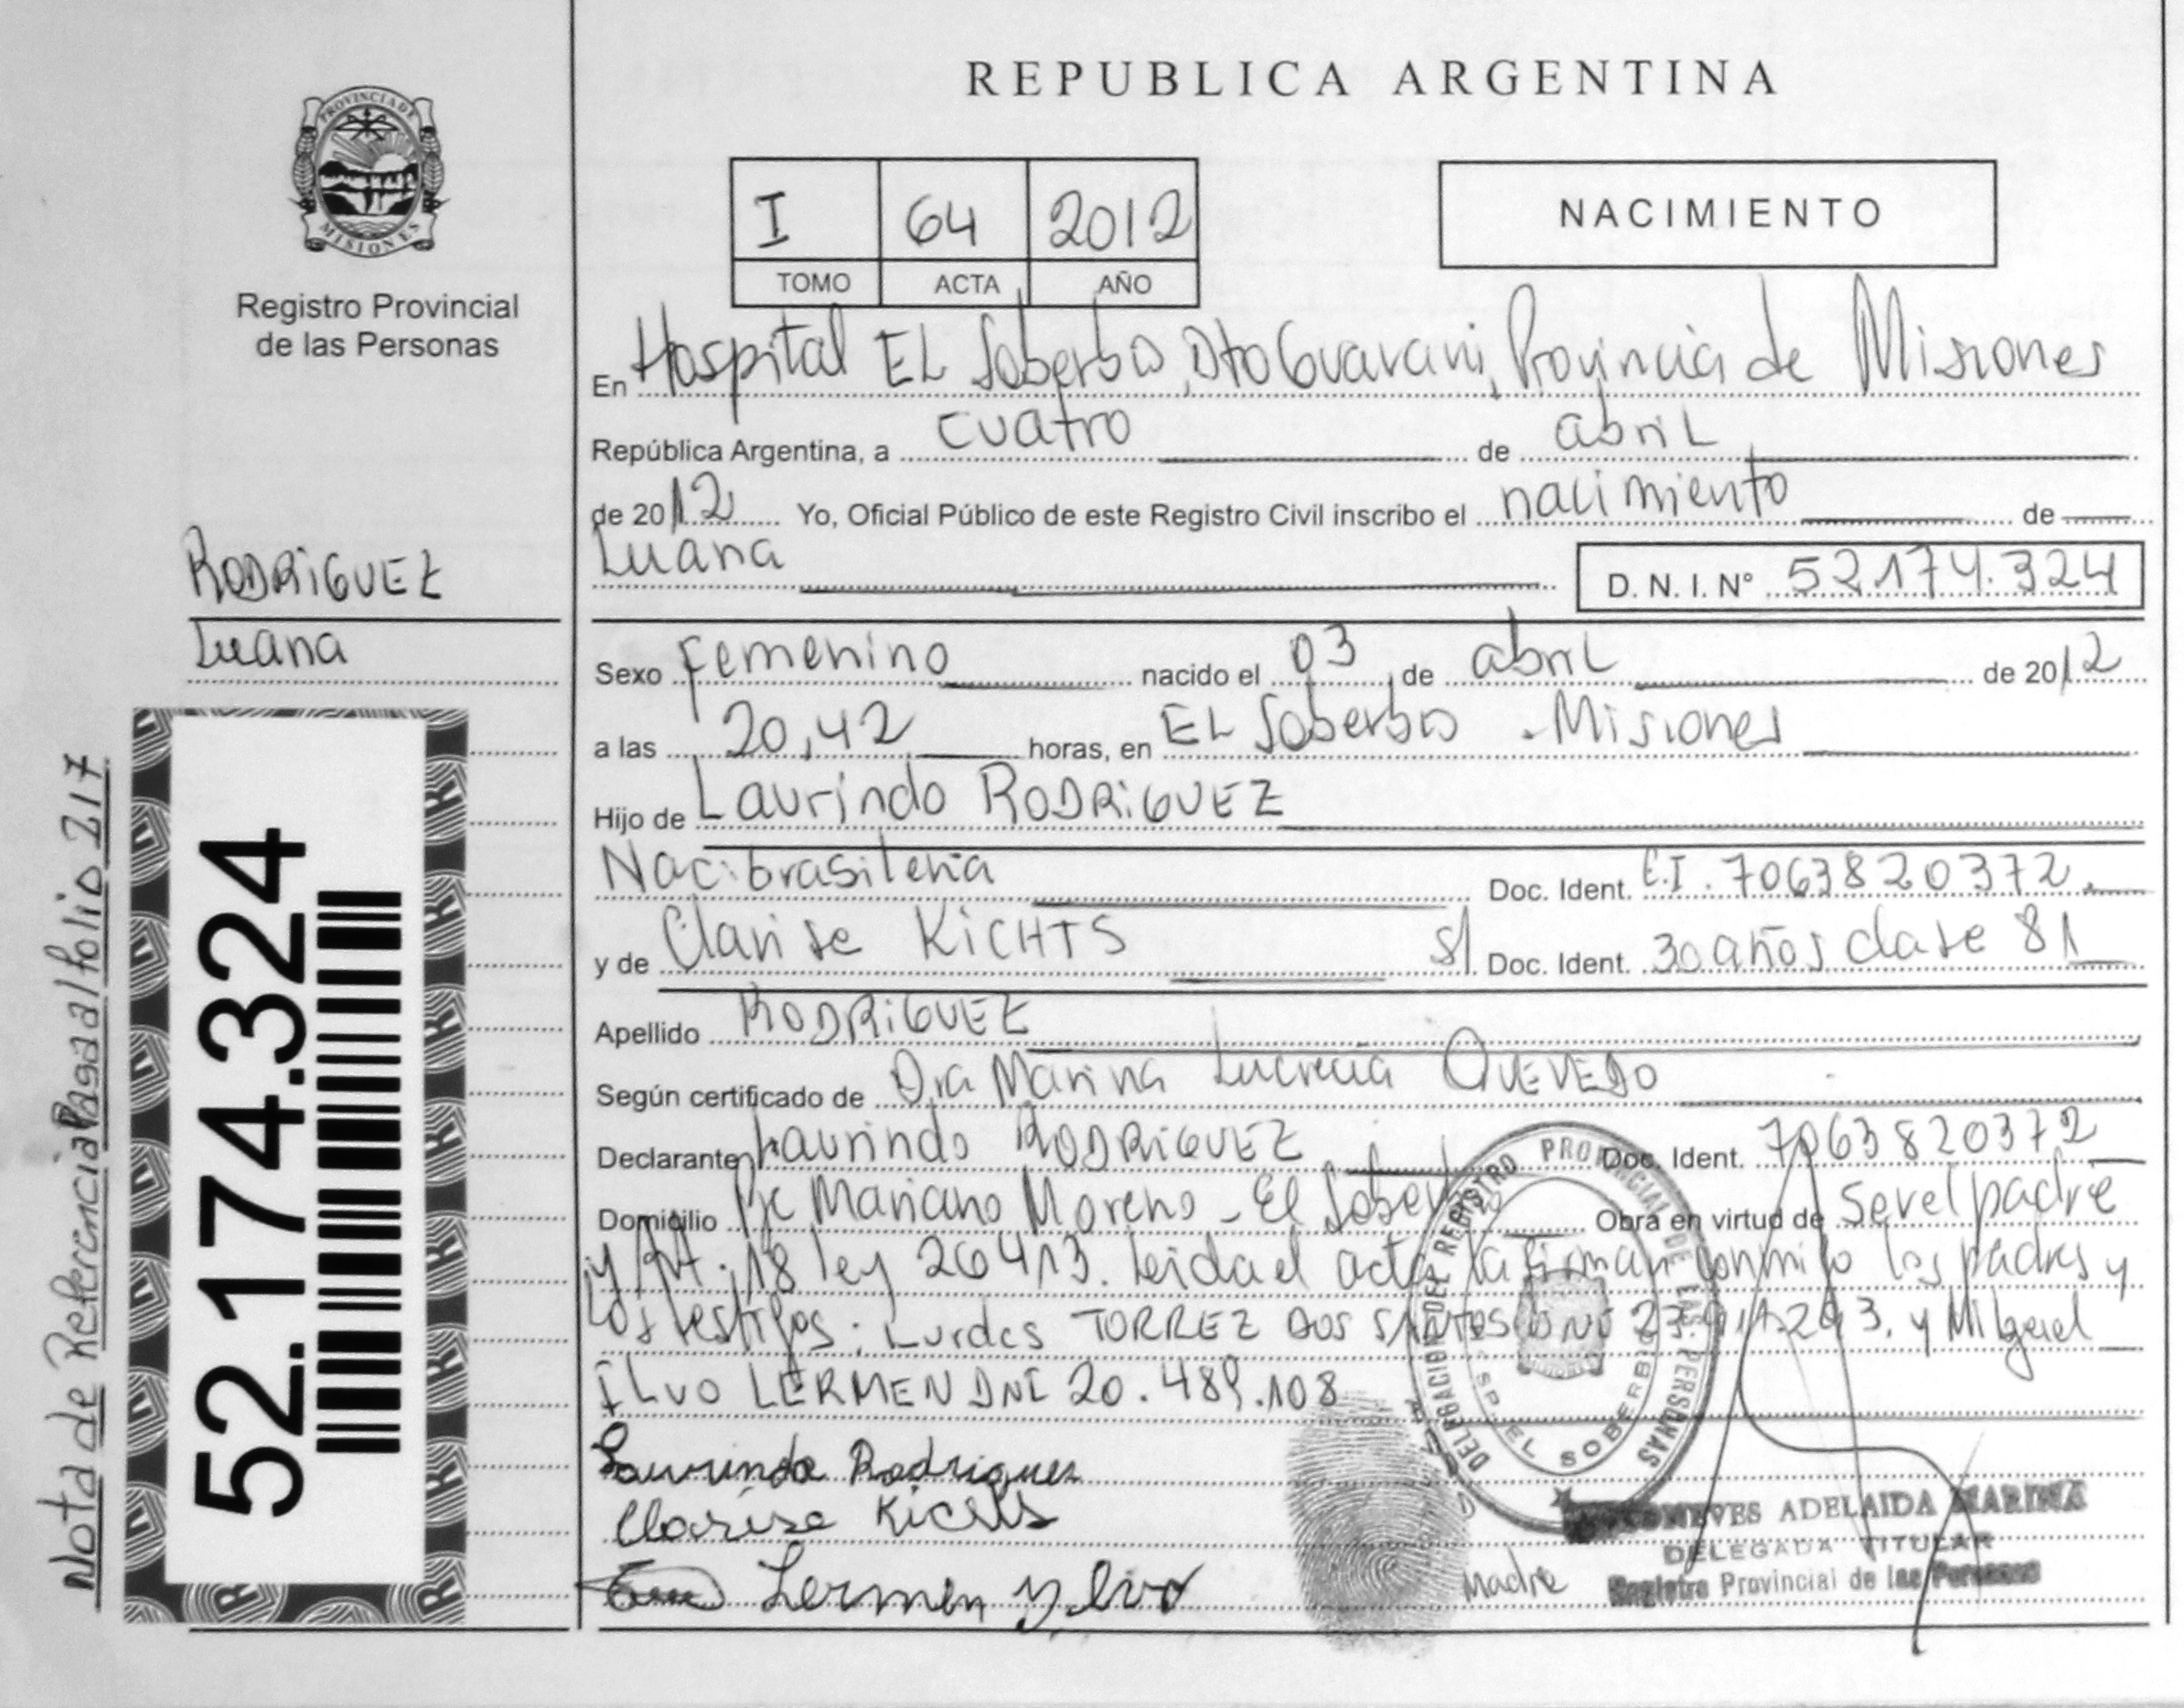 REPUBLICA ARGENTINA
PROVINCIA DE
MISIONES
Registro Provincial
de las Personas
I 64 2012
TOMO ACTA AÑO
NACIMIENTO
En Hospital EL Soberbio, Dto Guarani, Provincia de Misiones
República Argentina, a cuatro de abril
de 2012 Yo, Oficial Público de este Registro Civil inscribo el nacimiento de
Luana
D. N. I. N° 52174.324
RODRIGUEZ
Luana
Sexo femenino nacido el 03 de abril de 2012
a las 20,42 horas, en EL Soberbio - Misiones
Hijo de Laurindo RODRIGUEZ
Nac: brasileña Doc. Ident. C.I. 7063820372.
y de Clarise KICHTS S/ Doc. Ident. 30 años clase 81
Apellido RODRIGUEZ
Según certificado de Dra Marina Lucrecia QUEVEDO
Declarante Laurindo RODRIGUEZ Doc. Ident. 7063820372
Domicilio Pje Mariano Moreno - El Soberbio Obra en virtud de Ser el padre
y Art. 18 ley 26413. Leida el acta la firman conmigo los padres y
los testigos: Lurdes TORREZ DOS SANTOS DNI y Miguel
ILVO LERMEN DNI 20.489.108
Laurindo Rodrigues
Clarise Kichts
Lermen Ylvo
Madre
DELEGACION DEL REGISTRO PROVINCIAL DE LAS PERSONAS
EL SOBERBIO
ADELAIDA MARINA
DELEGADA TITULAR
Registro Provincial de las Personas
52.174.324
Nota de Referencia Pasa al folio 217